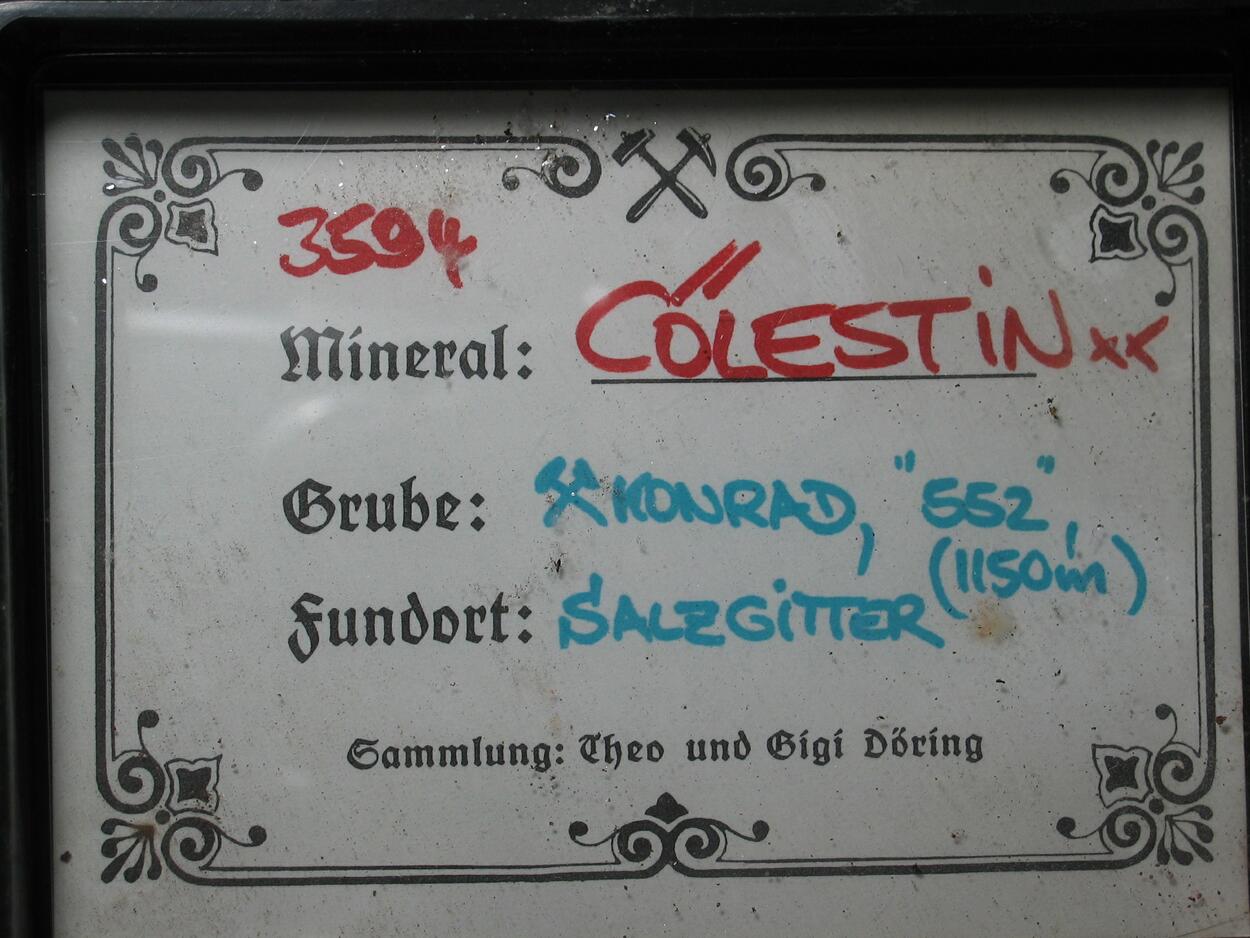 3594
Mineral: CÖLESTIN xx
Grube: ⚒ KONRAD, "552",
(1150m)
Fundort: SALZGITTER
Sammlung: Theo und Gigi Döring